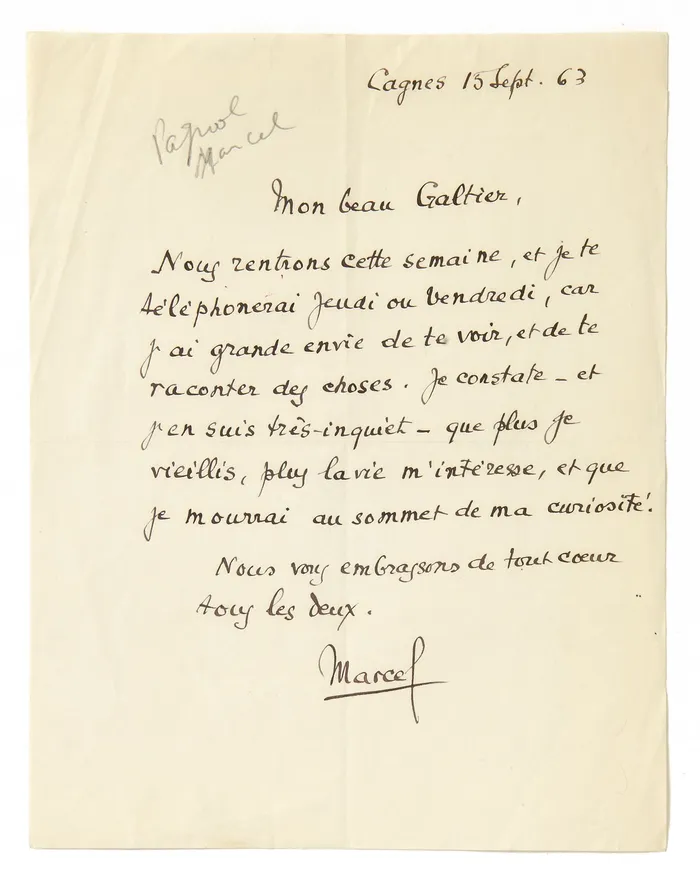 Cagnes 15 Sept. 63
Pagnol
Marcel
Mon beau Galtier,
Nous rentrons cette semaine, et je te
téléphonerai Jeudi ou Vendredi, car
j'ai grande envie de te voir, et de te
raconter des choses. Je constate - et
j'en suis très-inquiet - que plus je
vieillis, plus la vie m'intéresse, et que
je mourrai au sommet de ma curiosité.
Nous vous embrassons de tout coeur
tous les deux.
Marcel